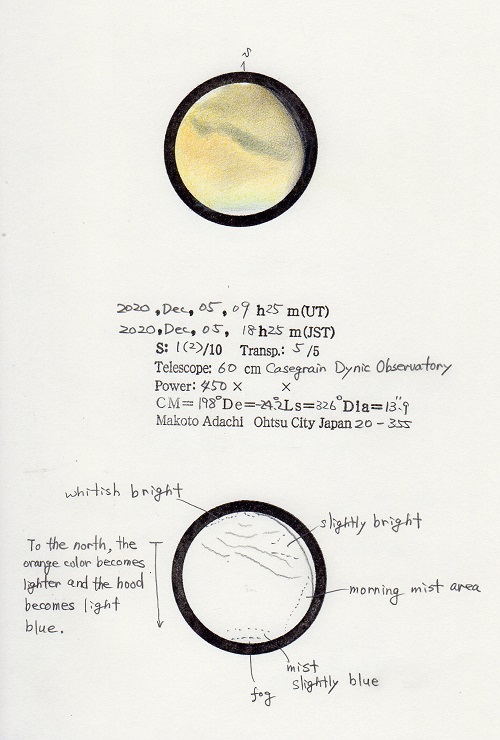 S
2020, Dec, 05, 09 h25 m(UT)
2020, Dec, 05, 18h25 m(JST)
S: 1(2)/10 Transp.: 5/5
Telescope: 60 cm Casegrain Dynic Observatory
Power: 450 × ×
CM=198°De=-24.°2Ls=326°Dia=13."9
Makoto Adachi Ohtsu City Japan 20-355
whitish bright
slightly bright
To the north, the
orange color becomes
lighter and the hood
becomes light
blue.
morning mist area
mist
slightly blue
fog